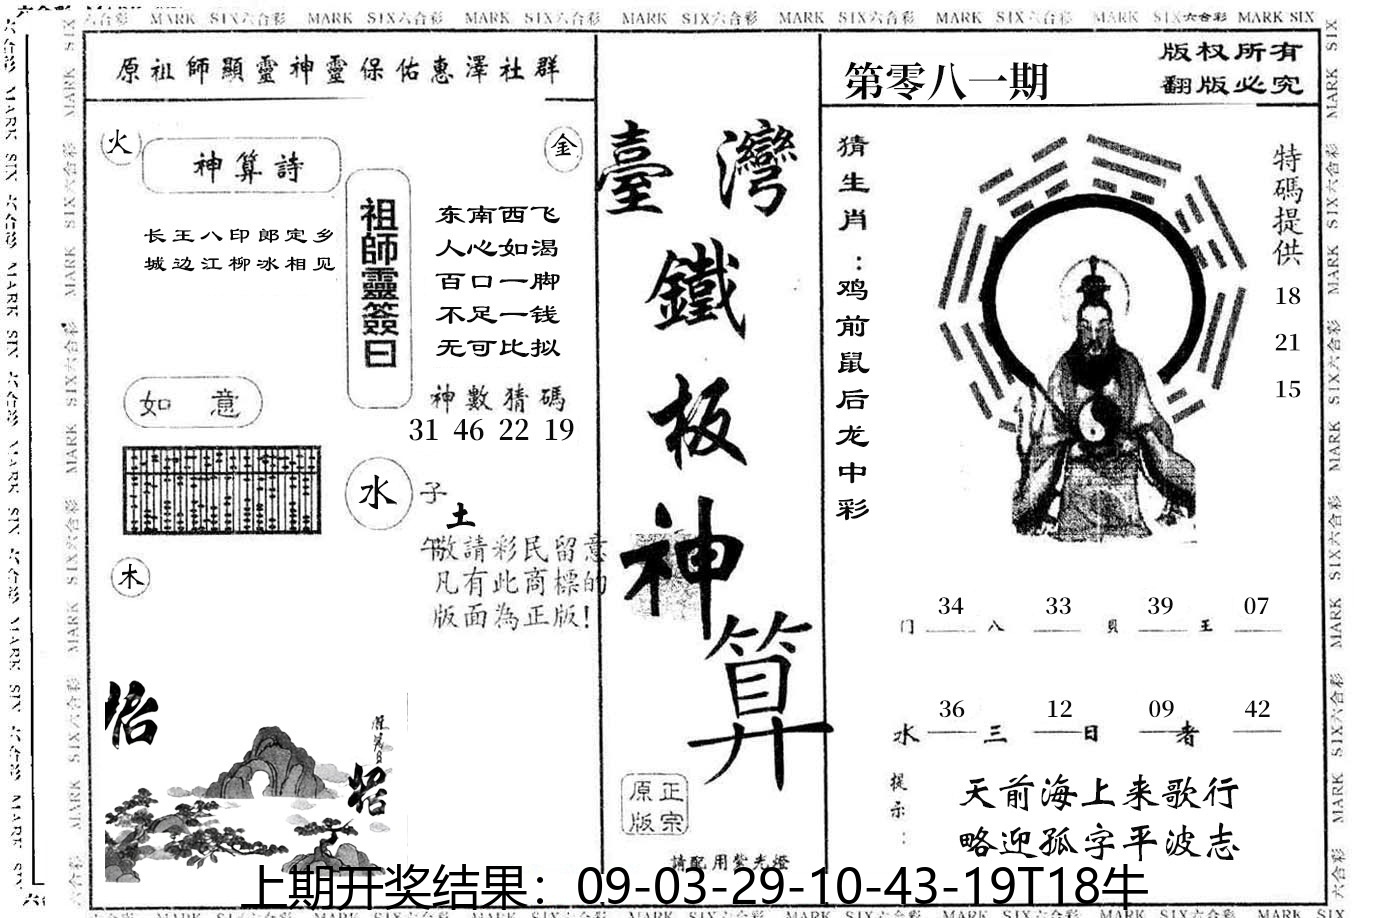 MARK SIX六合彩 MARK SIX六合彩 MARK SIX六合彩 MARK SIX六合彩 MARK SIX六合彩 MARK SIX六合彩 MARK SIX六合彩 MARK SIX
原祖師顯靈神靈保佑惠澤社群
火
神算詩
金
长王八印郎定乡
城边江柳冰相见
祖師靈簽曰
东南西飞
人心如渴
百口一脚
不足一钱
无可比拟
神數猜碼
31 46 22 19
如意
水
子
土
午
敬請彩民留意
凡有此商標的
版面為正版!
木
臺灣
鐵
板
神
算
原正
版宗
請配用紫光燈
第零八一期
版权所有
翻版必究
猜生肖:鸡前鼠后龙中彩
特碼提供
18
21
15
34 33 39 07
门 八 貝 王
36 12 09 42
水 三 日 者
提示:
天前海上来歌行
略迎孤字平波志
上期开奖结果：09-03-29-10-43-19T18牛